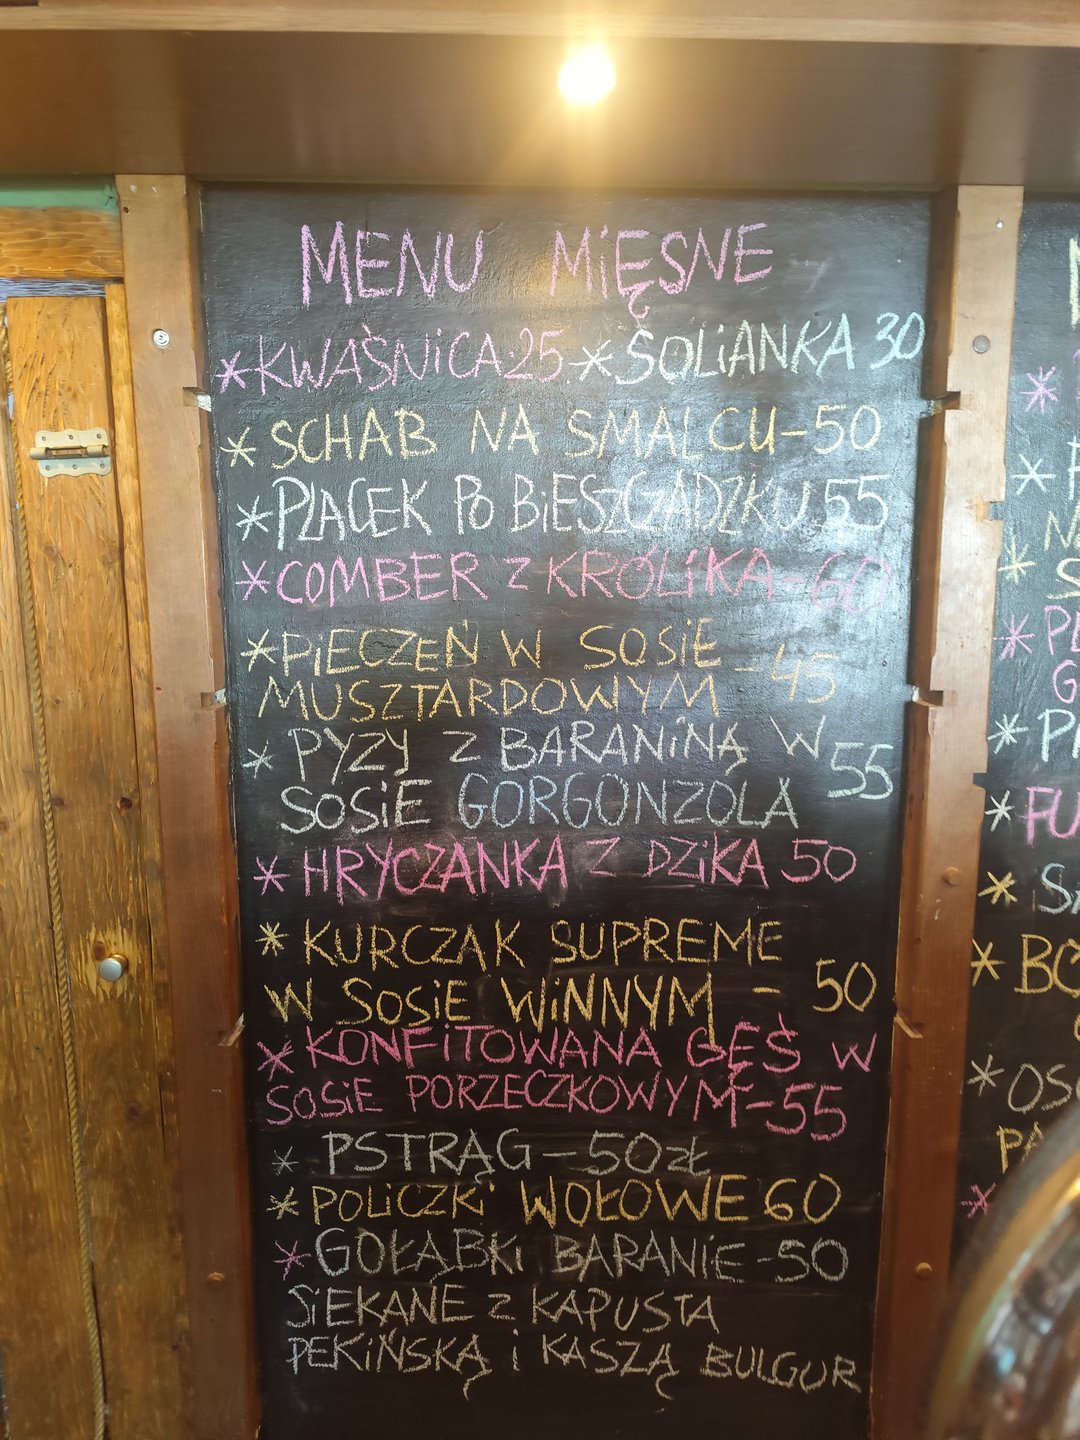 MENU MIĘSNE
*KWAŚNICA·25 *SOLIANKA 30
*SCHAB NA SMALCU-50
*PLACEK PO BIESZCZADZKU 55
*COMBER Z KRÓLIKA-60
*PIECZEŃ W SOSIE
MUSZTARDOWYM -45
*PYZY Z BARANINĄ W
SOSIE GORGONZOLA 55
*HRYCZANKA Z DZIKA 50
*KURCZAK SUPREME
W SOSIE WINNYM - 50
*KONFITOWANA GĘŚ W
SOSIE PORZECZKOWYM-55
*PSTRĄG-50ZŁ
*POLICZKI WOŁOWE 60
*GOŁĄBKI BARANIE-50
SIEKANE Z KAPUSTA
PEKIŃSKĄ i KASZĄ BULGUR